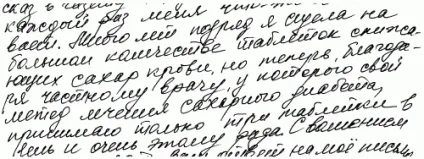 каждый раз меня
вает. Много лет подряд я сидела на
большом количестве таблеток снижа-
ющих сахар крови, но теперь, благода-
ря частному врачу, у которого свой
метод лечения сахарного диабета,
принимаю только три таблетки в
день и очень этому рада. С
ответ на моё письмо